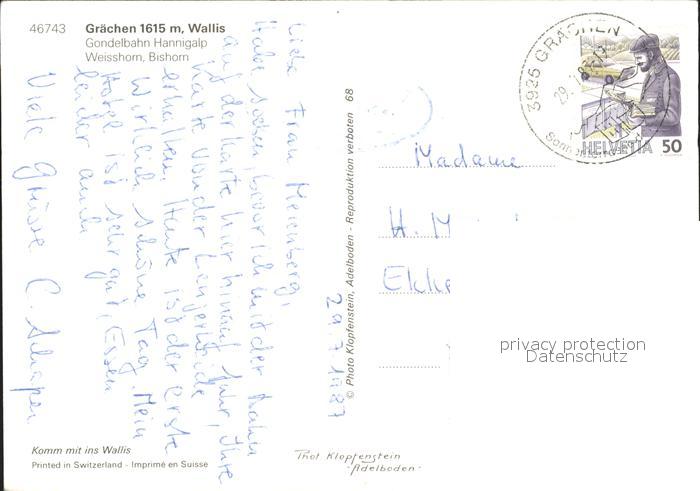 46743 Grächen 1615 m, Wallis
Gondelbahn Hannigalp
Weisshorn, Bishorn
Liebe Frau Meienberg,
Habe soeben, bevor ich mit der Bahn
auf der Karte hier hinauf fuhr, Ihre
Karte von der Lenzerheide
erhalten. Heute ist der erste
wirklich schöne Tag. Mein
Hotel ist sehr gut, (Essen
leider auch
Viele Grüsse C.
29.7.1987
Komm mit ins Wallis
Printed in Switzerland - Imprimé en Suisse
© Photo Klopfenstein, Adelboden - Reproduktion verboten 68
Phot Klopfenstein
-Adelboden-
3925 GRÄCHEN
HELVETIA 50
Madame
H. M
Ekke
privacy protection
Datenschutz